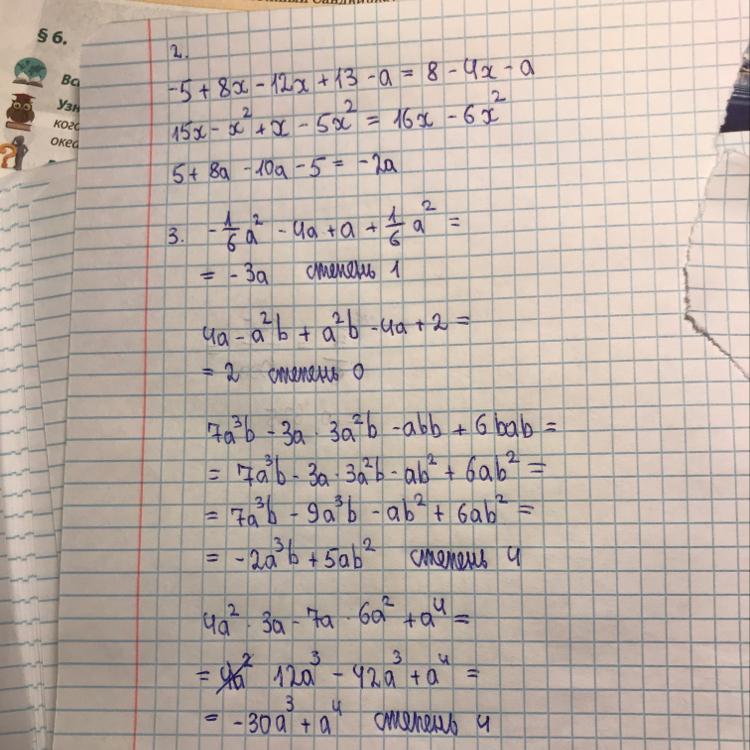 § 6.
Узн
2.
-5 + 8x - 12x + 13 - a = 8 - 4x - a
15x - x² + x - 5x² = 16x - 6x²
5 + 8a - 10a - 5 = -2a
3. -1/6 a² - 4a + a + 1/6 a² =
= -3a степень 1
4a - a²b + a²b - 4a + 2 =
= 2 степень 0
7a³b - 3a · 3a²b - abb + 6bab =
= 7a³b - 3a · 3a²b - ab² + 6ab² =
= 7a³b - 9a³b - ab² + 6ab² =
= -2a³b + 5ab² степень 4
4a² · 3a - 7a · 6a² + a⁴ =
= 4a² 12a³ - 42a³ + a⁴ =
= -30a³ + a⁴ степень 4